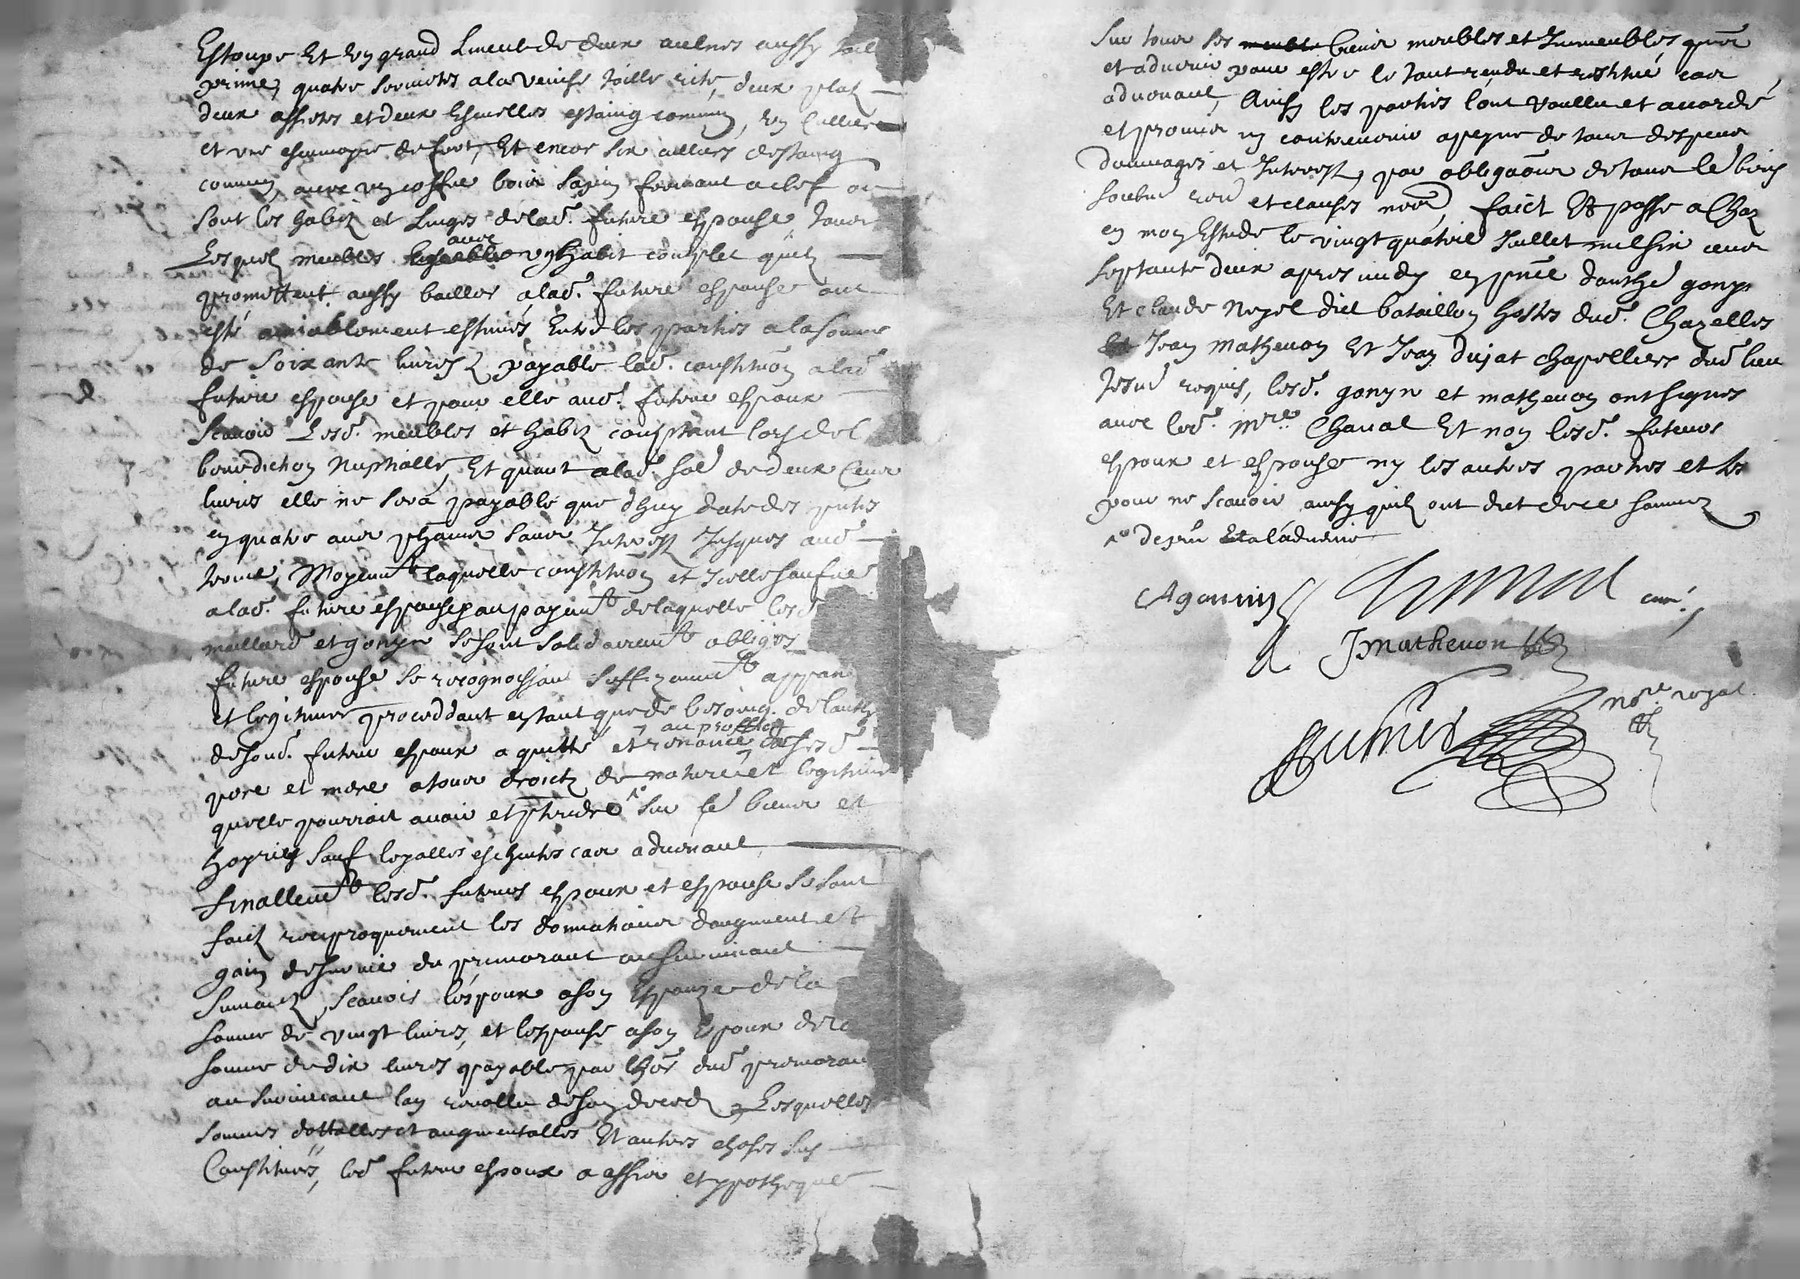 Estoupe Et Un grand Linceul de deux aulnes aussy toille
prime, quatre serviettes a la Venise toille rite, deux platz
deux assietes et deux Escuelles estaing commun, Un Cullier
et une escumoire de fert, Et encor six culliers destaing
commun, avec un coffre bois sapin fermant a clef ou
sont les habitz et Linges de lad. future espouse, tous
Lesquelz meubles avec un habit complet quilz
promettent aussy bailler a lad. future espouse ont
esté amiablement estimés Entre les parties a la somme
de soixante livres, payable lad. constitution a lad.
future espouse et pour elle aud. futur espoux
Scavoir Lesd. meubles et habitz constant lors de la
benediction nuptialle, Et quant a lad. so.e de deux Cens
livres elle ne sera payable que dhuy datte des p.ntes
en quatre ans prochains sans Interest Jusques aud.
terme, Moyenn.t laquelle constitution et Icelle faite
a lad. future espouse par payem.t de laquelle lesd.
maillard et gonyn se sont solidairem.t obligés
future espouse se recognoissant suffizamm.t appanée
et legitimée procedant en tant que de besoing de lauth.
de sond. futur espoux a quitté et renoncé au proffict de sesd.
pere et mere a tous droictz de nature et legitime
quelle pourroit avoir et p.tendre sur les biens et
hoyries sauf loyalles escheutes cas advenant
finallem.t lesd. futurs espoux et espouse se sont
faictz reciproquement les donnations daugment et
gain de survie du premorant au survivant
Suivantz, Scavoir lespoux a son Espouze de la
somme de vingt livres, et lespouse a son Espoux de la
somme de dix livres payable par les hers dud. premorant
au survivant lan revollu de son decedz, Lesquelles
sommes dottalles et augmentalles Et autres choses sus
Constituées, led. futur espoux a assise et ypothequé
Sur tous ses biens meubles et Immeubles p.nts
et advenir pour estre le tout rendu et restitué cas
advenant, Ainsy les parties lont voullu et accordé
et promis ny contrevenir a peyne de tous despens
dommages et Interest, par obligaon de tous les biens
soubm. ren. et clauses necess. faict Et passé a Chaz.
en mon Estude le vingt quatrie Juillet mil six cens
septante deux apres midy en p.nce danthe gonyn
Et claude Noyel dict bataillon hostes dud. Chazelles
Jean Mathevon Et Jean dujat chapelliers dud. lieu
tesm. requis, lesd. gonyn et mathevon ont signés
avec led. m.re Chanal Et non lesd. futurs
espoux et espouse ny les autres parties et tes.
pour ne scavoir ainsy quilz ont dict de ce sommez
A gonin Chanal curé
J mathevon
no.re royal